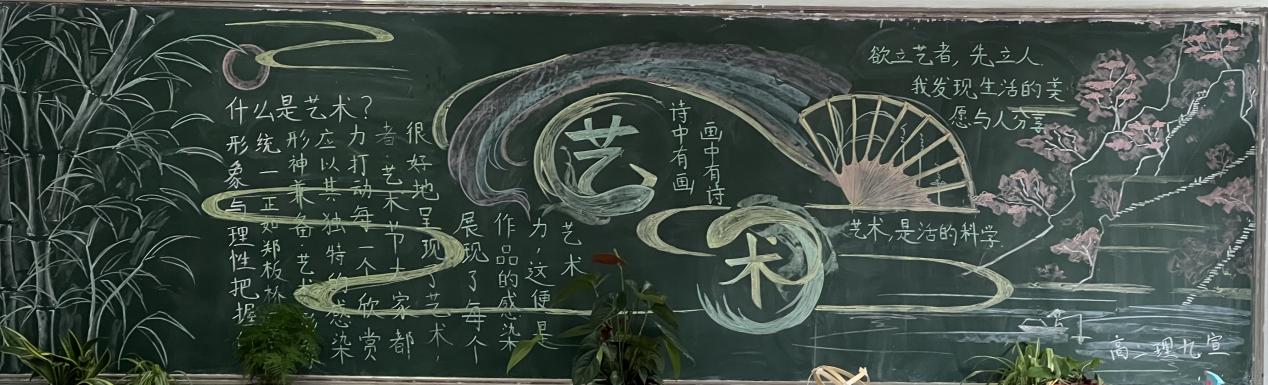 什么是艺术？
形象与理性把握
统一正如郑板
形神兼备·艺术
应以其独特的感染
力打动每一个欣赏
者·艺术节大家都
很好地呈现了艺术，
展现了每个
作品的感染
力，这便是
艺术
艺
术
诗中有画
画中有诗
欲立艺者，先立人.
我发现生活的美
愿与人分享
艺术，是活的科学.
高二理九宣